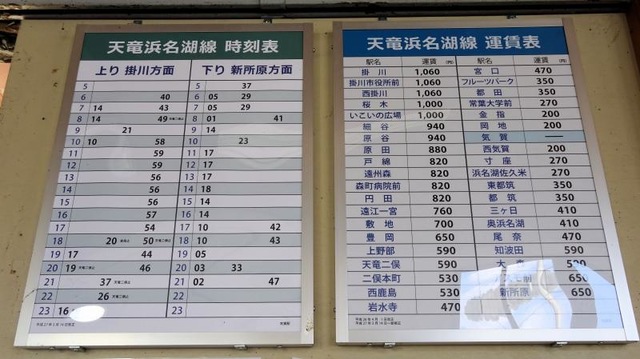 天竜浜名湖線 時刻表
上り 掛川方面 下り 新所原方面
5 5 37
6 40 6 05 29
7 14 43 7 05 29
8 14 49 8 01 41
9 21 9 14
10 10 58 10 23
11 59 11 17
12 59 12 17
13 56 13 17
14 56 14 18
15 56 15 14
16 57 16 14
17 54 17 10 42
18 20 50 天竜二俣止 18 10 43
19 17 44 19 05
20 19 天竜二俣止 46 20 03 33
21 37 天竜二俣止 21 02 47
22 26 天竜二俣止 22
23 16 23
天竜浜名湖線 運賃表
駅名 運賃 (円) 駅名 運賃 (円)
掛川 1,060 宮口 470
掛川市役所前 1,060 フルーツパーク 350
西掛川 1,060 都田 350
桜木 1,000 常葉大学前 270
いこいの広場 1,000 金指 200
細谷 940 岡地 200
原谷 940 気賀
原田 880 西気賀 200
戸綿 820 寸座 270
遠州森 820 浜名湖佐久米 270
森町病院前 820 東都筑 350
円田 820 都筑 350
遠江一宮 760 三ヶ日 410
敷地 700 奥浜名湖 410
豊岡 650 尾奈 470
上野部 590 知波田 590
天竜二俣 590 大森 590
二俣本町 530 650
西鹿島 530 新所原 650
岩水寺 470